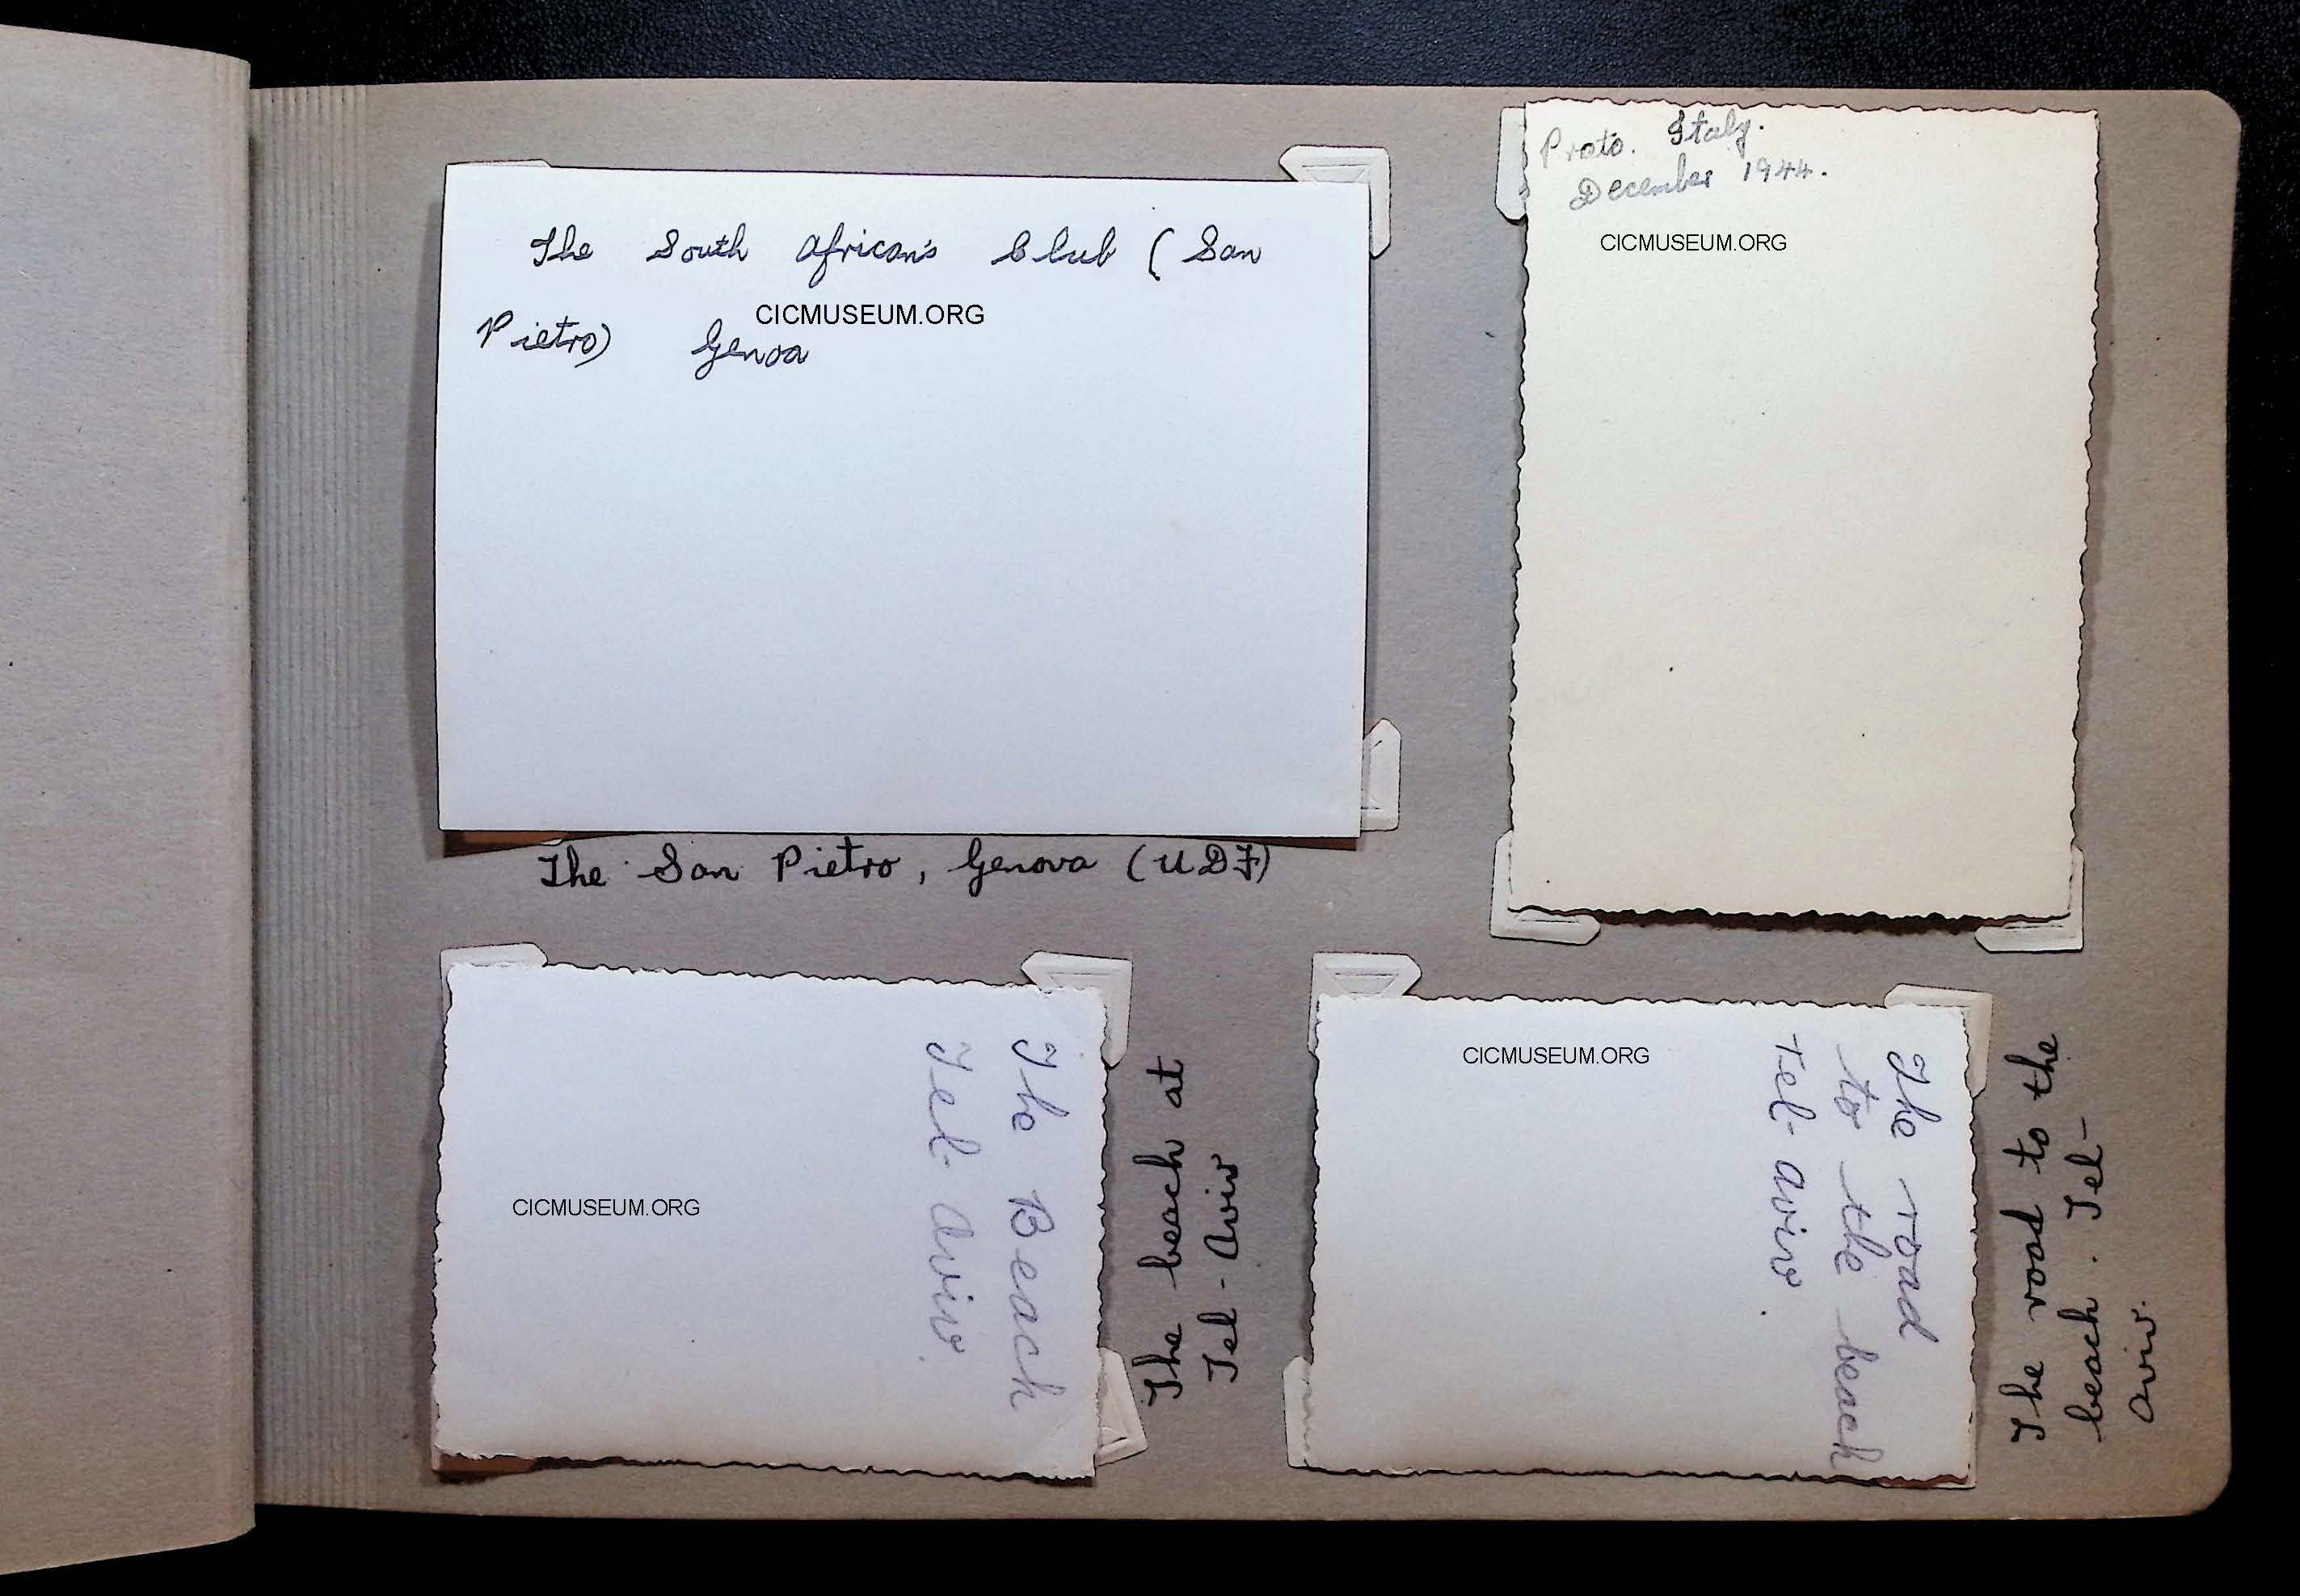 The South African's Club (San
CICMUSEUM.ORG
Pietro) Genoa
The San Pietro, Genova (UDF)
Prato. Italy.
December 1944.
CICMUSEUM.ORG
The Beach
Tel-Aviv.
CICMUSEUM.ORG
The beach at
Tel-Aviv
CICMUSEUM.ORG
The road
to the beach
Tel-Aviv.
The road to the
beach. Tel-
Aviv.